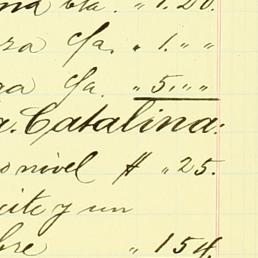 cta. " 1.20.
za Ya. " 1. " "
ga Ya. " 5. " "
a. Catalina.
o nivel # " 25.
cite y un
bre " 154.